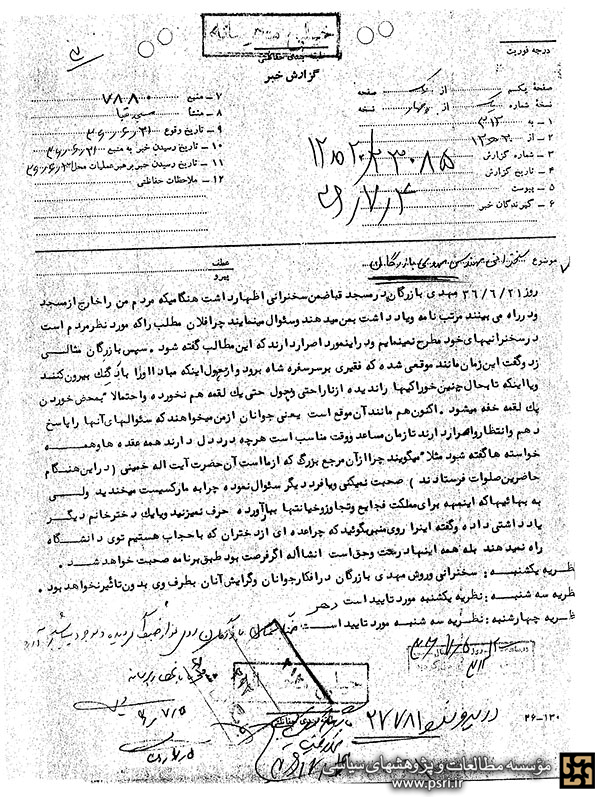 خیلی محرمانه
طبقه بندی حفاظتی
گزارش خبر
درجه فوریت
صفحه یکم از یک صفحه
نسخه شماره یک از چهار نسخه
۱ - به ۳۱۲
۲ - از ۲۰ ه ۱۲
۳ - شماره گزارش
۴ - تاریخ گزارش ۳۶/۷/۴
۵ - پیوست
۶ - گیرندگان خبر
۷ - منبع ۷۸۸۰
۸ - منشا مسجد قبا
۹ - تاریخ وقوع
۱۰ - تاریخ رسیدن خبر به منبع
۱۱ - تاریخ رسیدن خبر به رهبر عملیات محل
۱۲ - ملاحظات حفاظتی
موضوع سخنرانی مهندس مهدی بازرگان
عطف
پیرو
روز ۳۶/۶/۲۱ مهدی بازرگان در مسجد قبا ضمن سخنرانی اظهار داشت هنگامیکه مردم من را خارج از مسجد
و در راه می بینند مرتب نامه و یادداشت بمن میدهند و سئوال مینمایند چرا فلان مطلب را که مورد نظر مردم است
در سخنرانیهای خود مطرح نمینمایم و در اینمورد اصرار دارند که این مطالب گفته شود . سپس بازرگان مثالی
زد و گفت این زمان مانند موقعی شده که فقیری بر سر سفره شاه برود و از هول اینکه مبادا او را با کتک بیرون کنند
و یا اینکه تا بحال چنین خوراکیها را ندیده از ناراحتی و هول حتی یک لقمه هم نخورده و احتمالا " بمحض خوردن
یک لقمه خفه میشود . اکنون هم مانند آن موقع است یعنی جوانان از من میخواهند که سئوالهای آنها را پاسخ
دهم و انتظار و اصرار دارند تا زمان مساعد و وقت مناسب است هرچه درد دل دارند همه عقده ها و همه
خواسته ها گفته شود مثلا " میگویند چرا از آن مرجع بزرگ که از ما است آن حضرت آیت اله خمینی ( در این هنگام
حاضرین صلوات فرستادند ) صحبت نمیکنی و یا فرد دیگر سئوال نموده چرا به مارکسیست میخندید ولی
به بهائیها که اینهمه برای مملکت فجایع و تجاوز و خیانتها ببار آورده حرف نمیزنید و یا یک دختر خانم دیگر
یادداشتی داده و گفته اینرا روی منبر بگوئید که چرا عده ای از دختران که با حجاب هستیم توی دانشگاه
راه نمیدهند بله همه اینها درست و حق است انشا اله اگر فرصت بود طبق برنامه صحبت خواهد شد .
نظریه یکشنبه : سخنرانی و روش مهدی بازرگان در افکار جوانان و گرایش آنان بطرف وی بدون تاثیر نخواهد بود .
نظریه سه شنبه : نظریه یکشنبه مورد تایید است
نظریه چهارشنبه : نظریه سه شنبه مورد تایید است
در پرونده ۲۷۷۸۱
۳۶-۱۳۰
مؤسسه مطالعات و پژوهشهای سیاسی
www.psri.ir